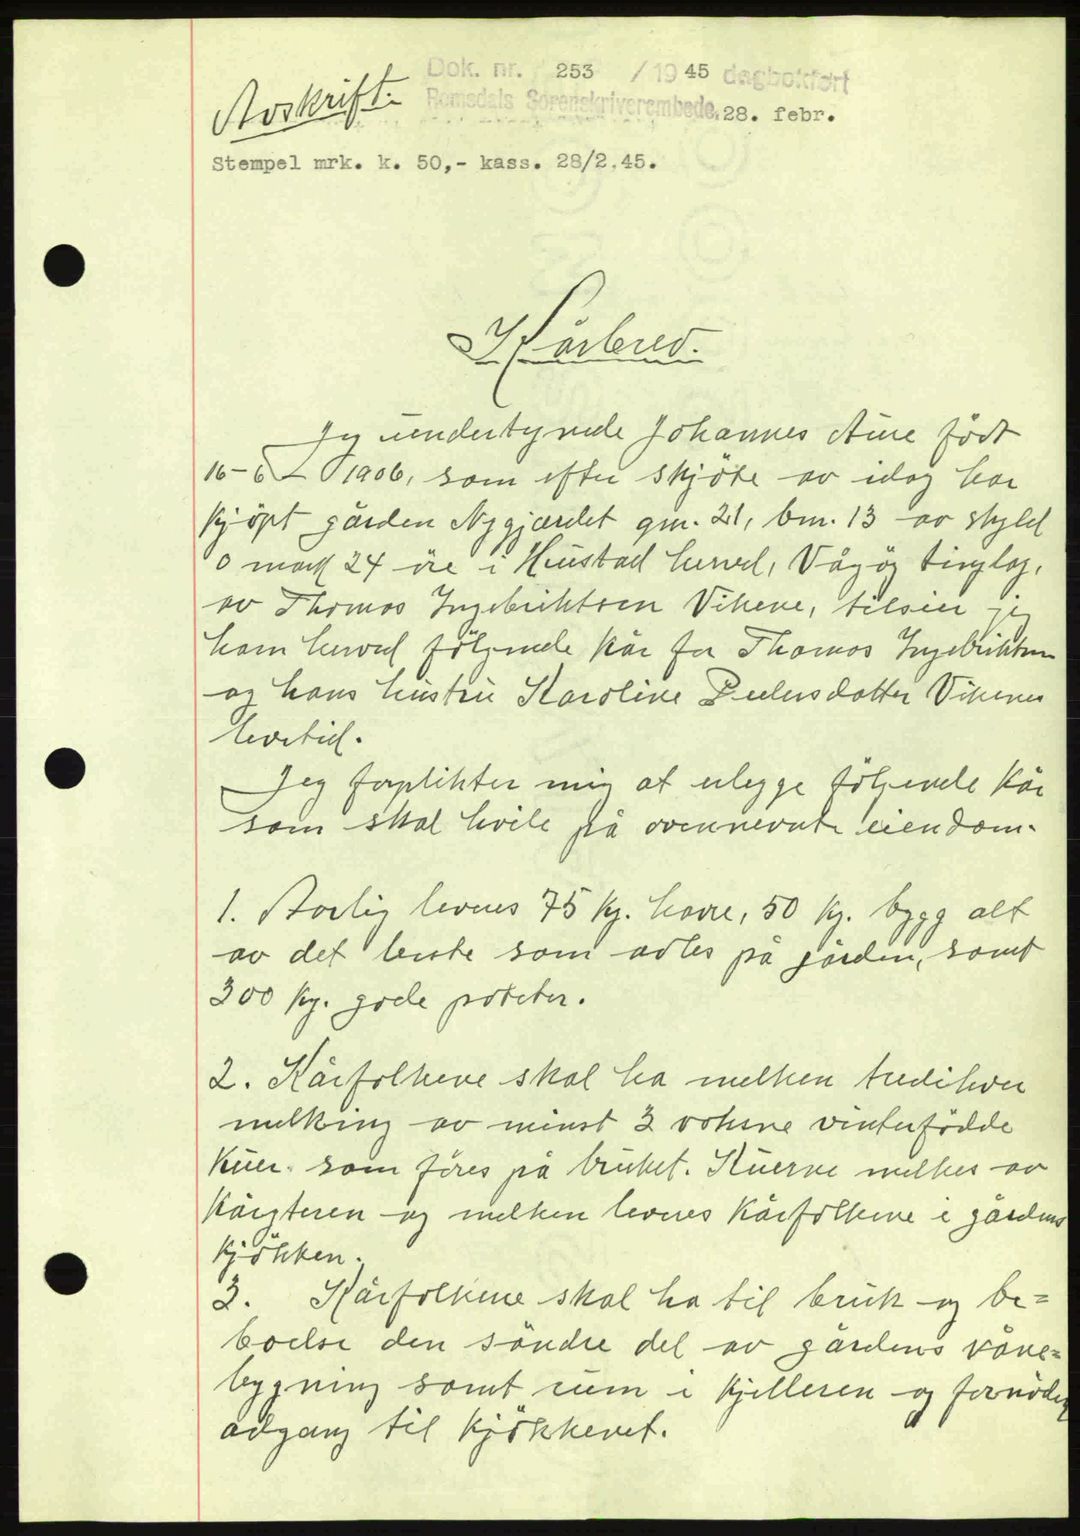 Dok. nr. 253 / 1945 dagbokført
Avskrift.
Romsdals Sorenskriverembede, 28. febr.
Stempel mrk. k. 50,- kass. 28/2.45.
Kårbrev.
Jeg undertegnede Johannes Aue født
16-6-1906, som efter skjöte av idag har
kjöpt gården Nygjærdet gnr. 21, bnr. 13 av skyld
0 mark 24 öre i Hustad herred, Vågöy tinglag,
av Thomas Ingebriktsen Vikene, tilsier jeg
ham herved fölgende kår for Thomas Ingebriktsen
og hans hustru Karoline Pedersdatter Vikenes
levetid.
Jeg forplikter mig at erlegge fölgende kår
som skal hvile på ovennevnte eiendom.
1. Aarlig leveres 75 kg. havre, 50 kg. bygg alt
av det beste som avles på gården, samt
300 kg. gode poteter.
2. Kårfolkene skal ha melken tredihver
melking av minst 3 voksne vinterfödde
kuer som föres på bruket. Kuerne melkes av
kårgteren og melken leveres kårfolkene i gårdens
kjökken.
3. Kårfolkene skal ha til bruk og be=
boelse den söndre del av gårdens våne=
bygning samt rum i kjelleren og fornöden
adgang til kjökkenet.